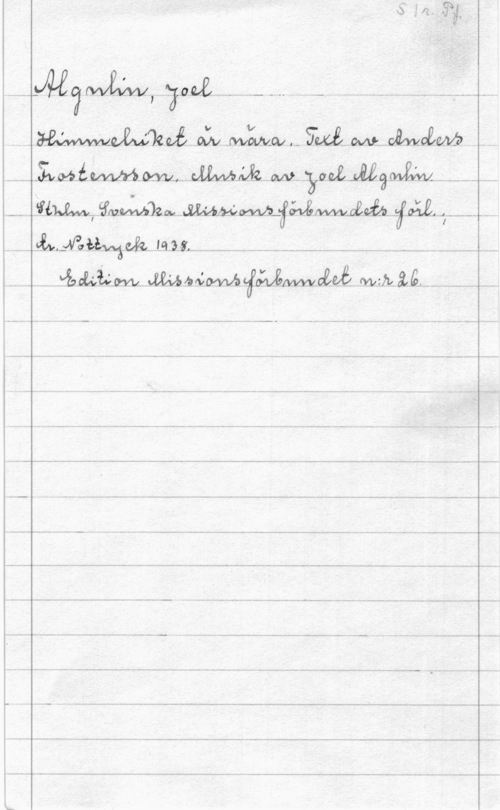 S 1 n. Pf.
Algulin, Joel
Himmelriket är nära. Text av Anders
Frostensson. Musik av Joel Algulin.
Sthlm, Svenska Missionsförbundets förl.;
tr. Nottryck 1938.
Edition Missionsförbundet n:r 26.